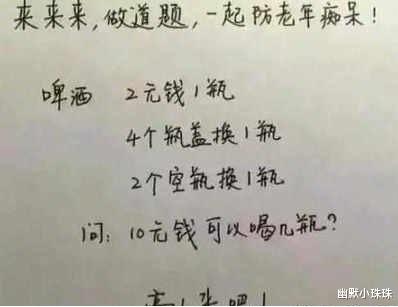 来来来,做道题,一起防老年痴呆!
啤酒 2元钱1瓶
4个瓶盖换1瓶
2个空瓶换1瓶
问:10元钱可以喝几瓶?
幽默小珠珠